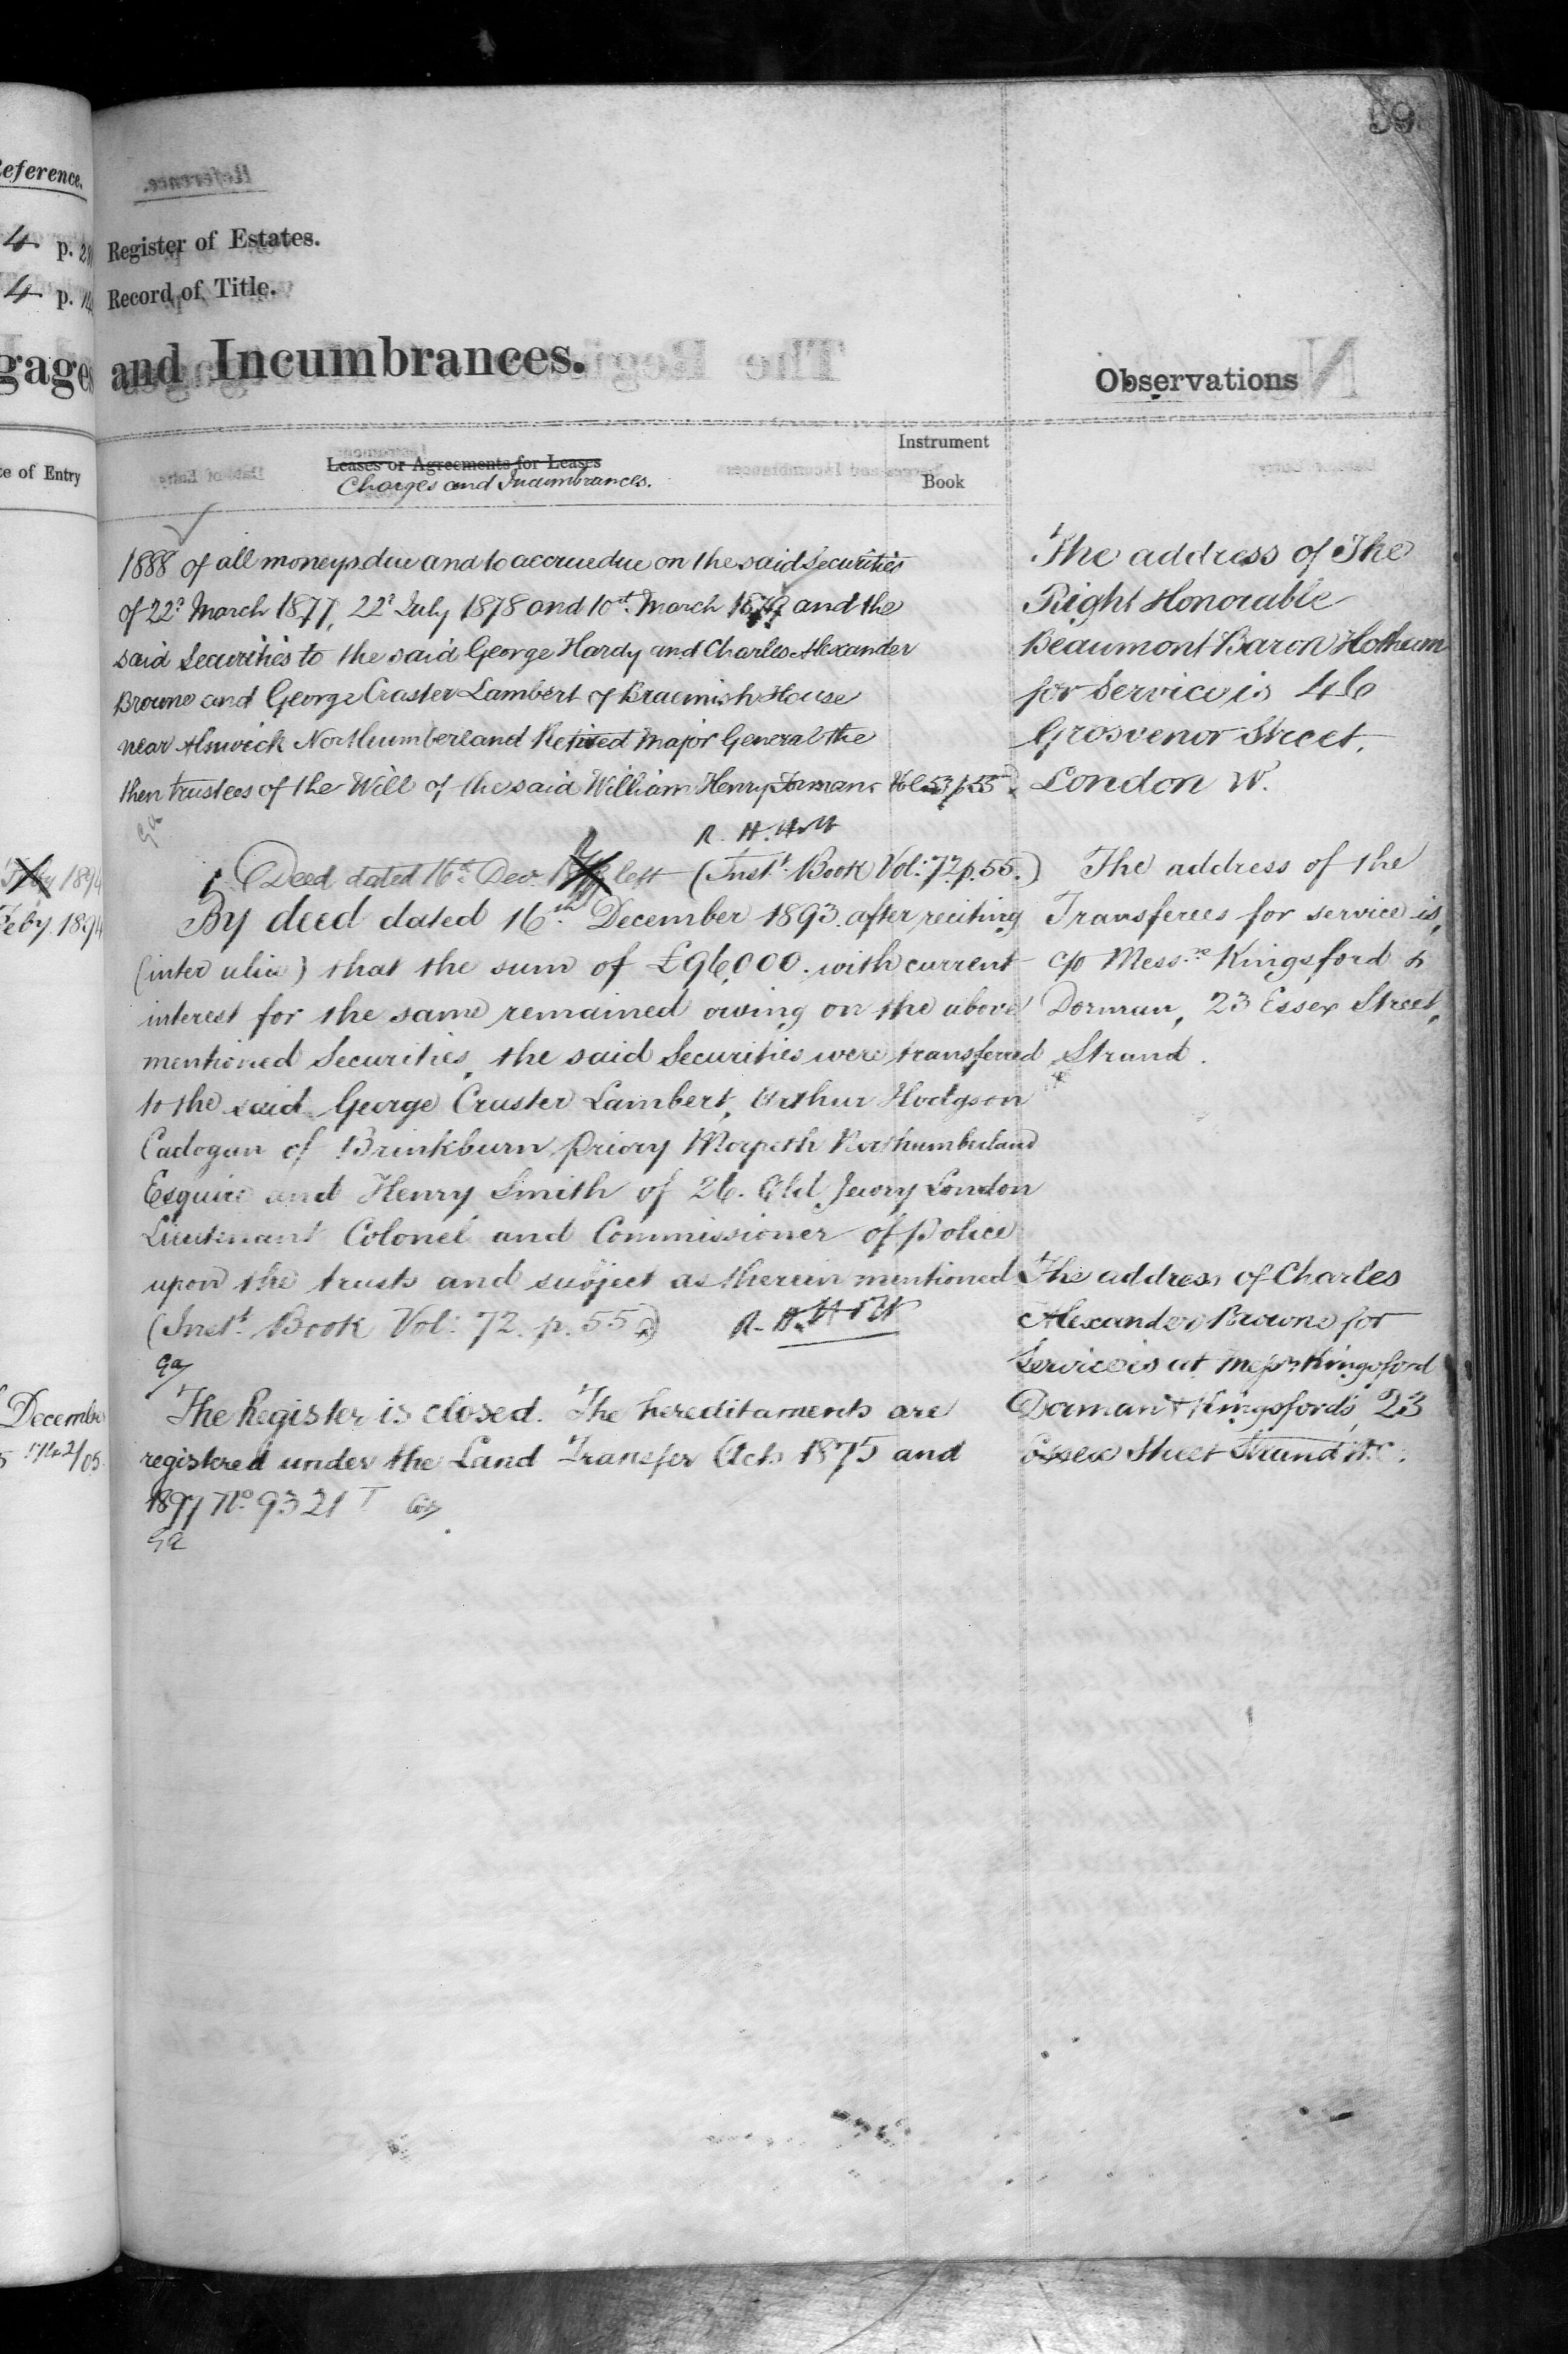 59
Reference.
4 p.
4 p.
Register of Estates.
Record of Title.
gages
and Incumbrances.
Observations
te of Entry
Leases or Agreements for Leases
Charges and Incumbrances.
Instrument
Book
1888 of all moneys due and to accrue due on the said Securities
of 22d March 1877, 22d July 1878 and 10th March 1879 and the
said Securities to the said George Hardy and Charles Alexander
Browne and George Craster Lambert of House
near Alnwick Northumberland Retired Major General the
then trustees of the Will of the said William Henry Forman Vol 53 p. 55
R. H. Holt
Deed dated 16th Dec. left (Inst. Book Vol: 72 p. 55.)
1894
Feby. 1894
By deed dated 16th December 1893. after reciting
(inter alia) that the sum of £96,000. with current
interest for the same remained owing on the above
mentioned Securities, the said Securities were transferred
to the said George Craster Lambert, Arthur Hodgson
Cadogan of Brinkburn Priory Morpeth Northumberland
Esquire and Henry Smith of 26. Old Jewry London
Lieutenant Colonel and Commissioner of Police
upon the trusts and subject as therein mentioned
(Inst. Book Vol: 72. p. 55) R. H. Holt
Decembe
The Register is closed. The hereditaments are
registered under the Land Transfer Acts 1875 and
1897 No. 9321
The address of The
Right Honorable
Beaumont Baron Hotham
for service is 46
Grosvenor Street,
London W.
The address of the
Transferees for service is,
c/o Messrs Kingsford &
Dorman, 23 Essex Street,
Strand.
The address of Charles
Alexander Browne for
Service is at Messrs Kingsford
Dorman & Kingsfords, 23
Essex Street Strand W.C.